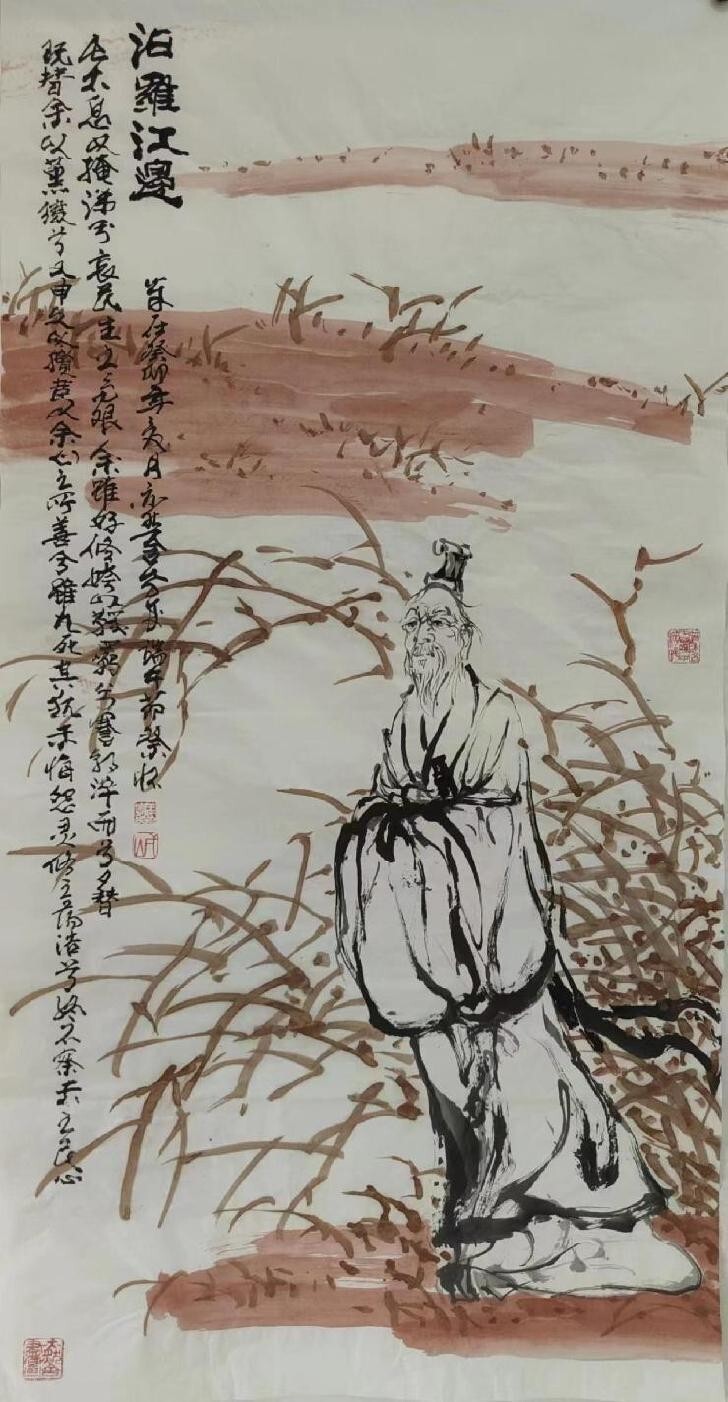 汨羅江邊
長太息以掩涕兮哀民生之多艰余雖好修姱以鞿羈兮謇朝谇而兮夕替
既替余以蕙纕兮又申之以攬茝亦余心之所善兮雖九死其犹未悔怨灵修之蕩浩兮终不察夫之民心
歲在癸卯年夏月 端午節祭